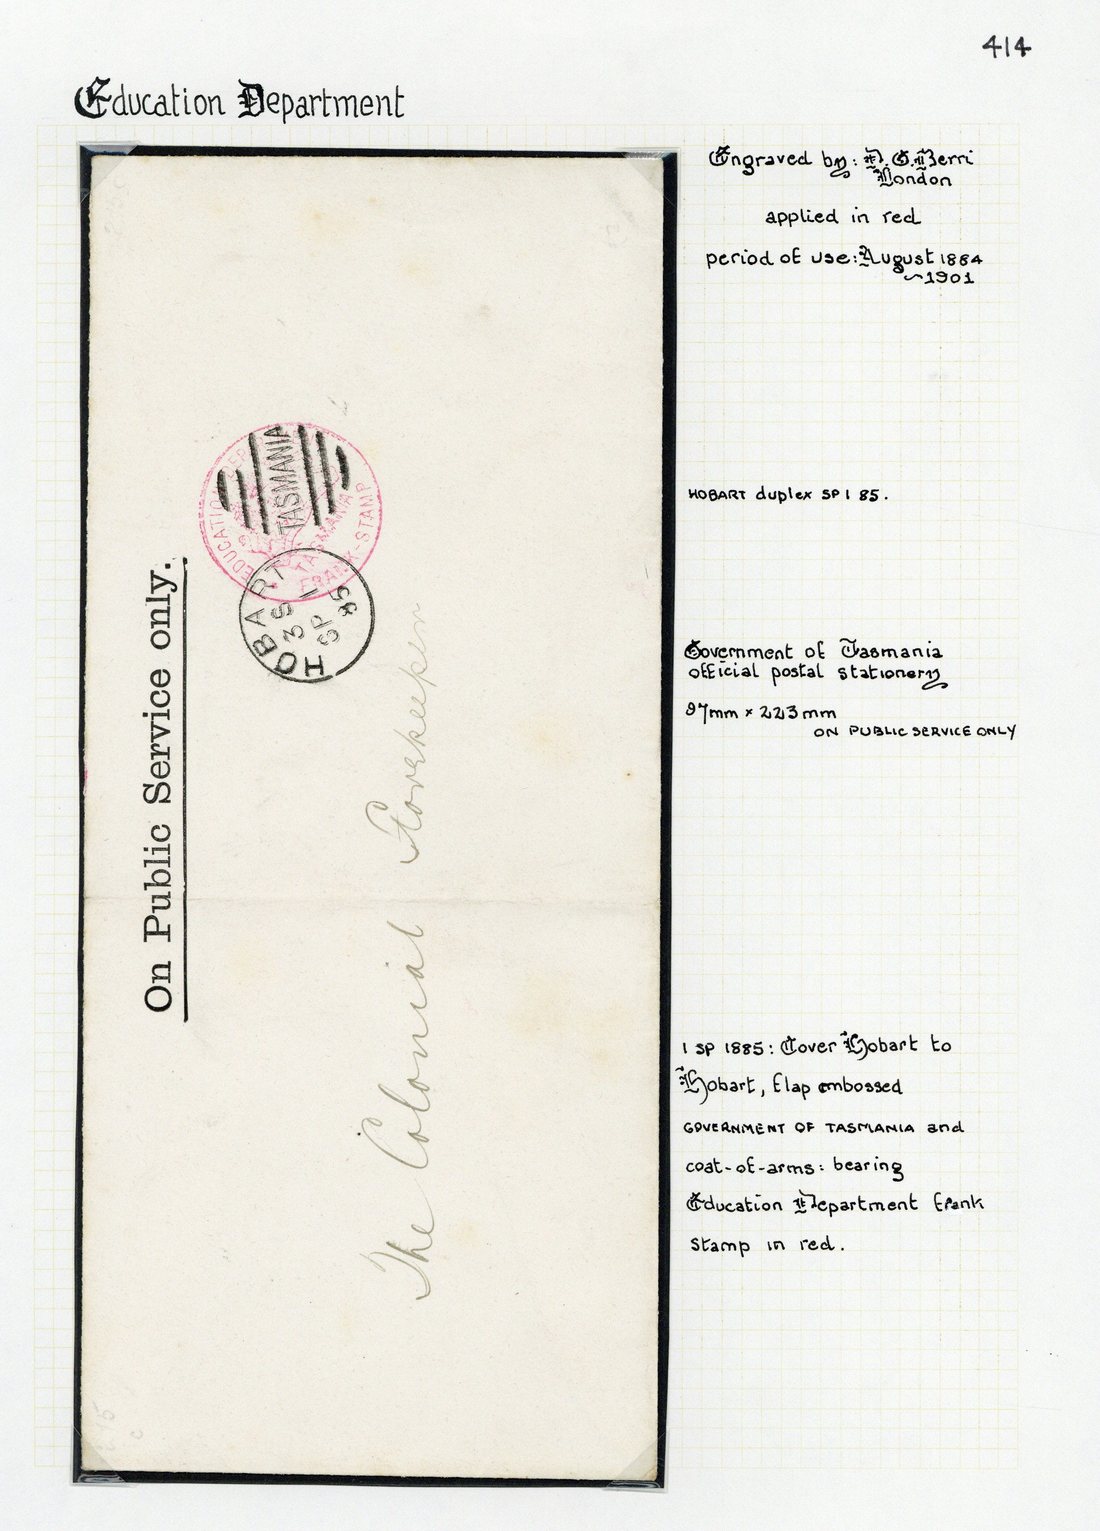 414
Education Department
Engraved by: D.G.Berri
London
applied in red
period of use: August 1884
~1901
EDUCATION DEP
TASMANIA
TASMANIA
FRANK-STAMP
HOBART
3 S
SP 1
85
On Public Service only.
The Colonial Storekeeper
HOBART duplex SP 1 85.
Government of Tasmania
official postal stationery
97mm x 223mm
ON PUBLIC SERVICE ONLY
1 SP 1885: Cover Hobart to
Hobart, flap embossed
GOVERNMENT OF TASMANIA and
coat-of-arms: bearing
Education Department frank
stamp in red.